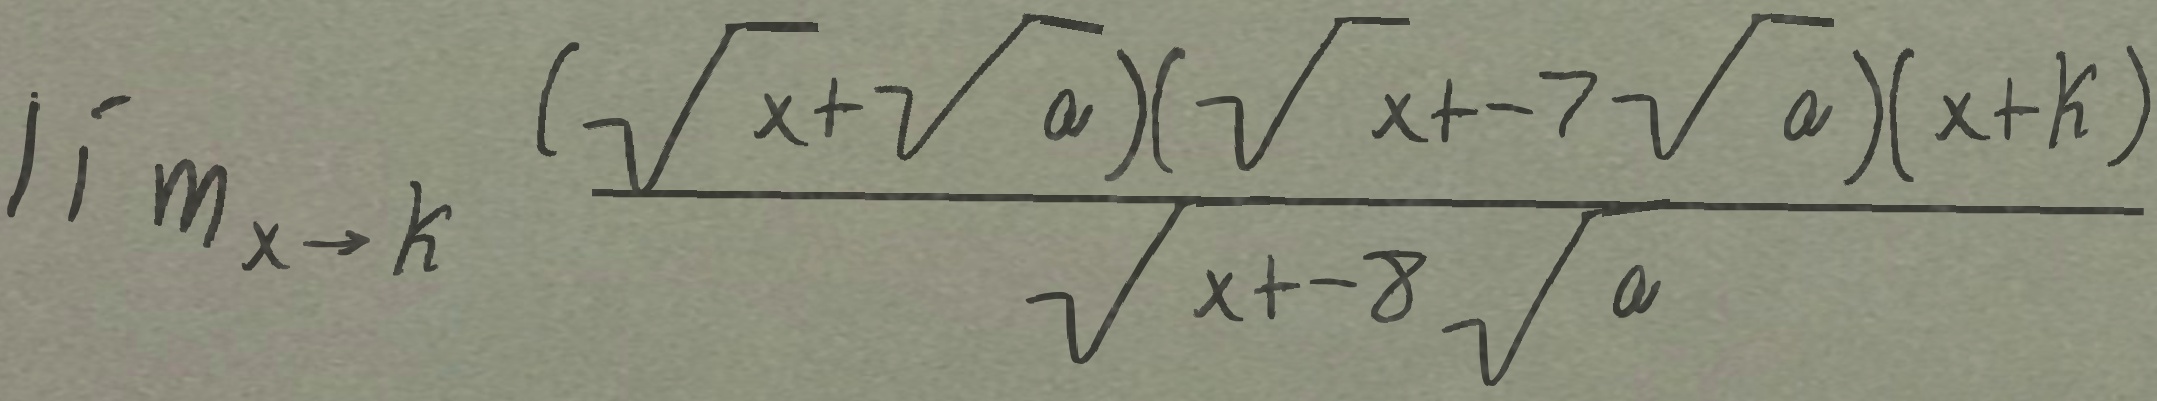 lim_{x→k} \frac{(\sqrt{x}+\sqrt{a})(\sqrt{x}+-7\sqrt{a})(x+k)}{\sqrt{x}+-8\sqrt{a}}